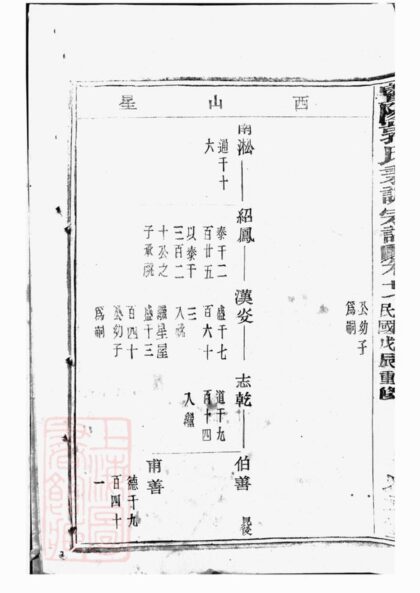 郭氏
民國戊辰重修
公幼子
爲嗣
西山星
南淞
通千十
六
紹鳳
泰千二
百廿五
以泰千
三百二
十公之
子承祧
漢炎
盛千七
百六十
三
入祧
繼星屋
盛千三
百四十
公幼子
爲嗣
志乾
道千九
百十四
入繼
伯善
甫善
德千九
百四十
一